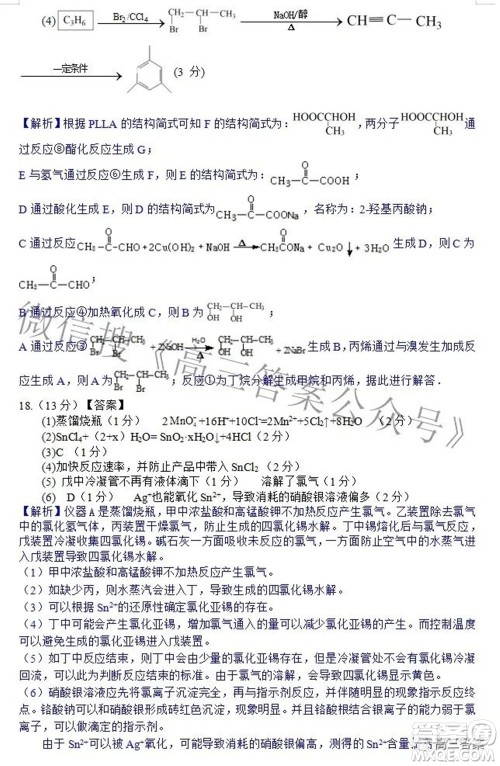 (4) C₃H₆ Br₂/CCl₄ CH₂—CH—CH₃ NaOH/醇 CH≡C—CH₃
Br Br △
一定条件 (3 分)
【解析】根据 PLLA 的结构简式可知 F 的结构简式为：HOOCCHOH，两分子HOOCCHOH通
CH₃ CH₃
过反应⑧酯化反应生成 G；
E 与氢气通过反应⑥生成 F，则 E 的结构简式为：CH₃—C—COOH；
O
D 通过酸化生成 E，则 D 的结构简式为CH₃—C—COONa，名称为：2-羟基丙酸钠；
O
C 通过反应CH₃—C—CHO+2Cu(OH)₂ + NaOH △ CH₃—C—COONa + Cu₂O↓+ 3H₂O 生成 D，则 C 为
O
CH₃—C—CHO；
B 通过反应④加热氧化成 C，则 B 为CH₂—CH—CH₃；
OH OH
A 通过反应③ +2NaOH H₂O △ +2NaBr 生成 B，丙烯通过与溴发生加成反
应生成 A，则 A 为 ；反应①为丁烷分解生成甲烷和丙烯，据此进行解答．
18.（13 分）【答案】
(1)蒸馏烧瓶（1 分） 2MnO₄⁻+16H⁺+10Cl⁻=2Mn²⁺+5Cl₂↑+8H₂O （2 分）
(2)SnCl₄+（2+x）H₂O= SnO₂·xH₂O↓+4HCl（2 分）
(3)C （1 分）
(4)加快反应速率，并防止产品中带入 SnCl₂（2 分）
(5) 戊中冷凝管不再有液体滴下（1 分） 溶解了氯气（1 分）
(6) D（1 分） Ag⁺也能氧化 Sn²⁺，导致消耗的硝酸银溶液偏多（2 分）
【解析】仪器 A 是蒸馏烧瓶，甲中浓盐酸和高锰酸钾不加热反应产生氯气。乙装置除去氯气中
的氯化氢气体，丙装置干燥氯气，防止生成的四氯化锡水解。丁中锡熔化后与氯气反应，
戊装置冷凝收集四氯化锡。碱石灰一方面吸收未反应的氯气，一方面防止空气中的水蒸气进
入戊装置导致四氯化锡水解。
（1）甲中浓盐酸和高锰酸钾不加热反应产生氯气。
（2）如缺少丙，则水蒸汽会进入丁，导致生成的四氯化锡水解。
（3）可以根据 Sn²⁺的还原性确定氯化亚锡的存在。
（4）丁中可能会产生氯化亚锡，增加氯气的量可以减少氯化亚锡的产生。而控制温度
可以避免生成的氯化亚锡进入戊装置。
（5）如丁中反应结束，则丁中会由少量的氯化亚锡存在，但是冷凝管处不会有氯化锡冷凝
回流，可以此为判断反应结束的标准。由于氯气的溶解，会导致四氯化锡显示黄色。
（6）硝酸银溶液应先将氯离子沉淀完全，再与指示剂反应，并伴随明显的现象指示反应终
点。铬酸钠可以和硝酸银形成砖红色沉淀，现象明显。并且铬酸根结合银离子的能力弱于氯
离子，可以做滴定的指示剂。
由于 Sn²⁺可以被 Ag⁺氧化，可能导致消耗的硝酸银偏高，测得的 Sn²⁺含量
微信搜《高三答案公众号》
高三答案